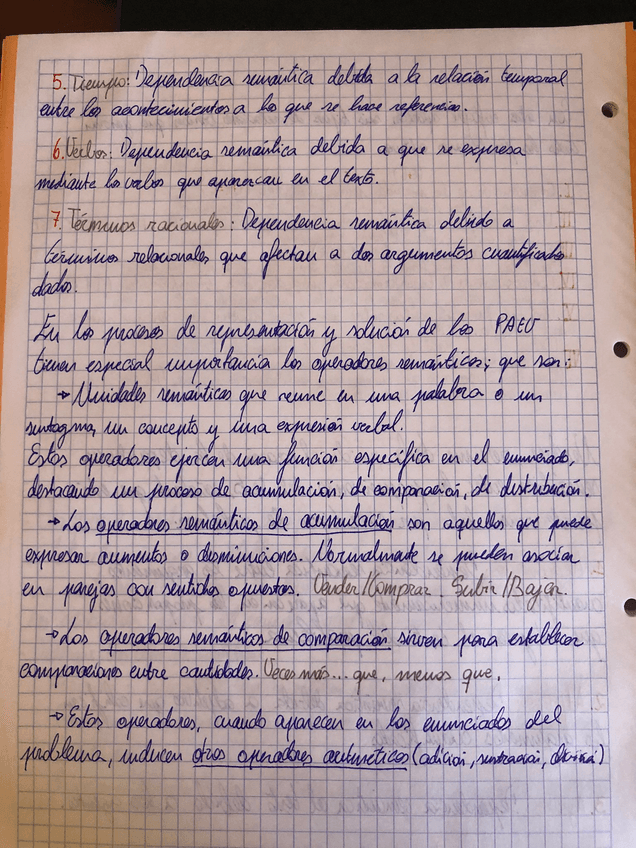 5. Tiempo: Dependencia semántica debida a la relación temporal
entre los acontecimientos a los que se hace referencia.
6. Verbos: Dependencia semántica debida a que se expresa
mediante los verbos que aparezcan en el texto.
7. Términos racionales: Dependencia semántica debido a
términos relacionales que afectan a dos argumentos cuantificados
dados.
En los procesos de representación y solución de los PAEV
tienen especial importancia los operadores semánticos; que son:
→ Unidades semánticas que reune en una palabra o un
sintagma, un concepto y una expresión verbal.
Estos operadores ejercen una función específica en el enunciado,
destacando un proceso de acumulación, de comparación, de distribución.
→ Los operadores semánticos de acumulación son aquellos que puede
expresar aumentos o disminuciones. Normalmente se pueden asociar
en parejas con sentidos opuestos. Vender/Comprar. Subir/Bajar.
→ Los operadores semánticos de comparación sirven para establecer
comparaciones entre cantidades. Veces más... que, menos que.
→ Estos operadores, cuando aparecen en los enunciados del
problema, inducen otros operadores aritméticos (adición, sustracción, división)